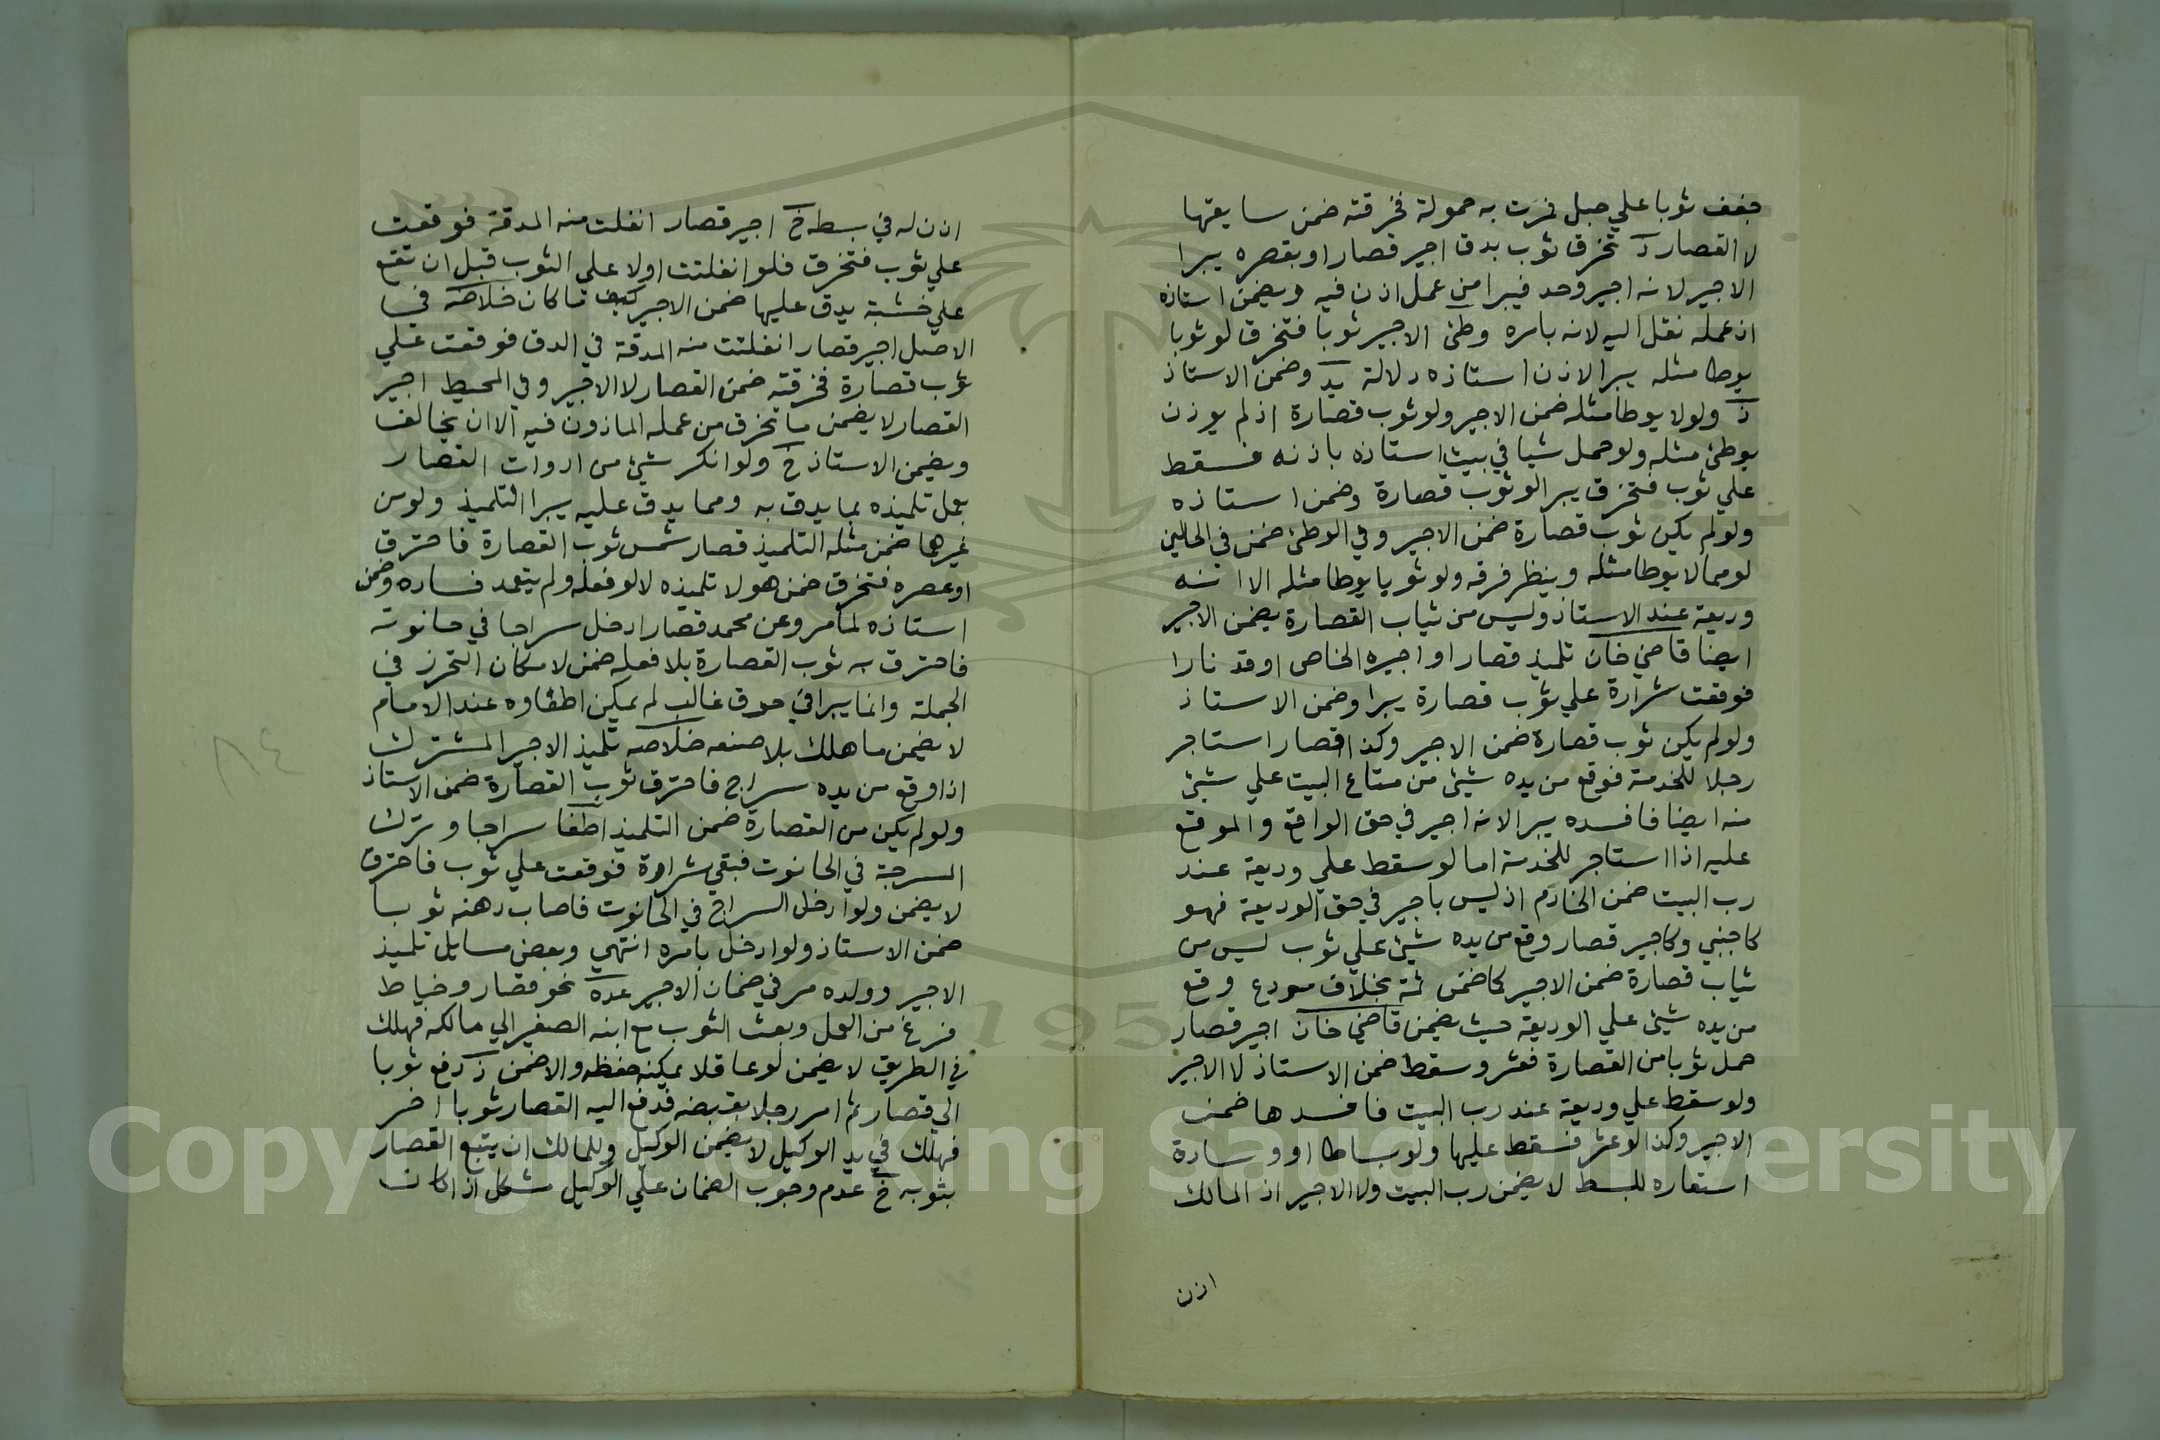 جفف ثوبا علي حبل فمرت به حمولة فخرقته ضمن سايقها
لا القصار ذ تخرق ثوب بدق اجير قصار او بقصره يبرا
الاجير لانه اجير وحد فيبرا من عمل اذن فيه ويضمن استاذه
اذ عمله نقل اليه لانه بامره وطئ الاجير ثوبا فتخرق لو ثوبا
يوطا مثله يبرا لاذن استاذه دلالة يد وضمن الاستاذ
ذ ولو لا يوطا مثله ضمن الاجير ولو ثوب قصارة اذ لم يوذن
بوطئ مثله ولو حمل شيا في بيت استاذه باذنه فسقط
علي ثوب فتخرق يبرا لو ثوب قصارة وضمن استاذه
ولو لم يكن ثوب قصارة ضمن الاجير وفي الوطئ ضمن في الحالين
لو مما لا يوطا مثله وينظر فرقه ولو ثوبا يوطا مثله الا انه
وديعة عند الاستاذ وليس من ثياب القصارة يضمن الاجير
ايضا قاضي خان تلميذ قصار او اجيره الخاص اوقد نارا
فوقعت شرارة علي ثوب قصارة يبرا وضمن الاستاذ
ولو لم يكن ثوب قصارة ضمن الاجير وكذا قصار استاجر
رجلا للخدمة فوقع من يده شيئ من متاع البيت علي شيئ
منه ايضا فافسده يبرا لانه اجير في حق الواقع والموقع
عليه اذا استاجر للخدمة اما لو سقط علي وديعة عند
رب البيت ضمن الخادم اذ ليس باجير في حق الوديعة فهو
كاجنبي وكاجير قصار وقع من يده شيئ علي ثوب ليس من
ثياب قصارة ضمن الاجير كما ضمن ثمة بخلاف مودع وقع
من يده شيئ علي الوديعة حيث يضمن قاضي خان اجير قصار
حمل ثوبا من القصارة فعثر وسقط ضمن الاستاذ لا الاجير
ولو سقط علي وديعة عند رب البيت فافسدها ضمن
الاجير وكذا لو عثر فسقط عليها ولو بساطا او وسادة
استعاره للبسط لا يضمن رب البيت ولا الاجير اذ المالك
اذن
اذن له في بسطه خ اجير قصار انفلت منه المدقة فوقعت
علي ثوب فتخرق فلو انفلتت اولا علي الثوب قبل ان تقع
علي خشبة يدق عليها ضمن الاجير كيف ما كان خلاصة في
الاصل اجير قصار انفلتت منه المدقة في الدق فوقعت علي
ثوب قصارة فخرقته ضمن القصار لا الاجير وفي المحيط اجير
القصار لا يضمن ما تخرق من عمله الماذون فيه الا ان يخالف
ويضمن الاستاذ خ ولو انكر شيئ من ادوات القصار
بعمل تلميذه بما يدق به ومما يدق عليه يبرا التلميذ ولو من
غيرها ضمن مثله التلميذ قصار شمس ثوب القصارة فاحترق
او عصره فتخرق ضمن هو لا تلميذه لا لو فعله ولم يتعمد فساده وضمن
استاذه لما مر وعن محمد قصار ادخل سراجا في حانوته
فاحترق به ثوب القصارة بلا فعله ضمن لامكان التحرز في
الجملة وانما يبرا في حرق غالب لم يمكن اطفاوه عند الامام
لا يضمن ما هلك بلا صنعه خلاصه تلميذ الاجير المشترك
اذا وقع من يده سراج فاحترق ثوب القصارة ضمن الاستاذ
ولو لم يكن من القصارة ضمن التلميذ اطفا سراجا وترك
السرجة في الحانوت فبقي شرارة فوقعت علي ثوب فاحترق
لا يضمن ولو ادخل السراج في الحانوت فاصاب دهنه ثوبا
ضمن الاستاذ ولو ادخل بامره انتهي وبعض مسايل تلميذ
الاجير وولده مر في ضمان الاجير عده نحو قصار وخياط
فرغ من العمل وبعث الثوب مع ابنه الصغير الي مالكه فهلك
في الطريق لا يضمن لو عاقلا يمكنه حفظه والا ضمن ذ دفع ثوبا
الي قصار ثم امر رجلا بقبضه فدفع اليه القصار ثوبا اخر
فهلك في يد الوكيل لا يضمن الوكيل وللمالك ان يتبع القصار
بثوبه خ عدم وجوب الضمان علي الوكيل مشكل اذا كان
٨٤
Copyright © King Saud University
1957